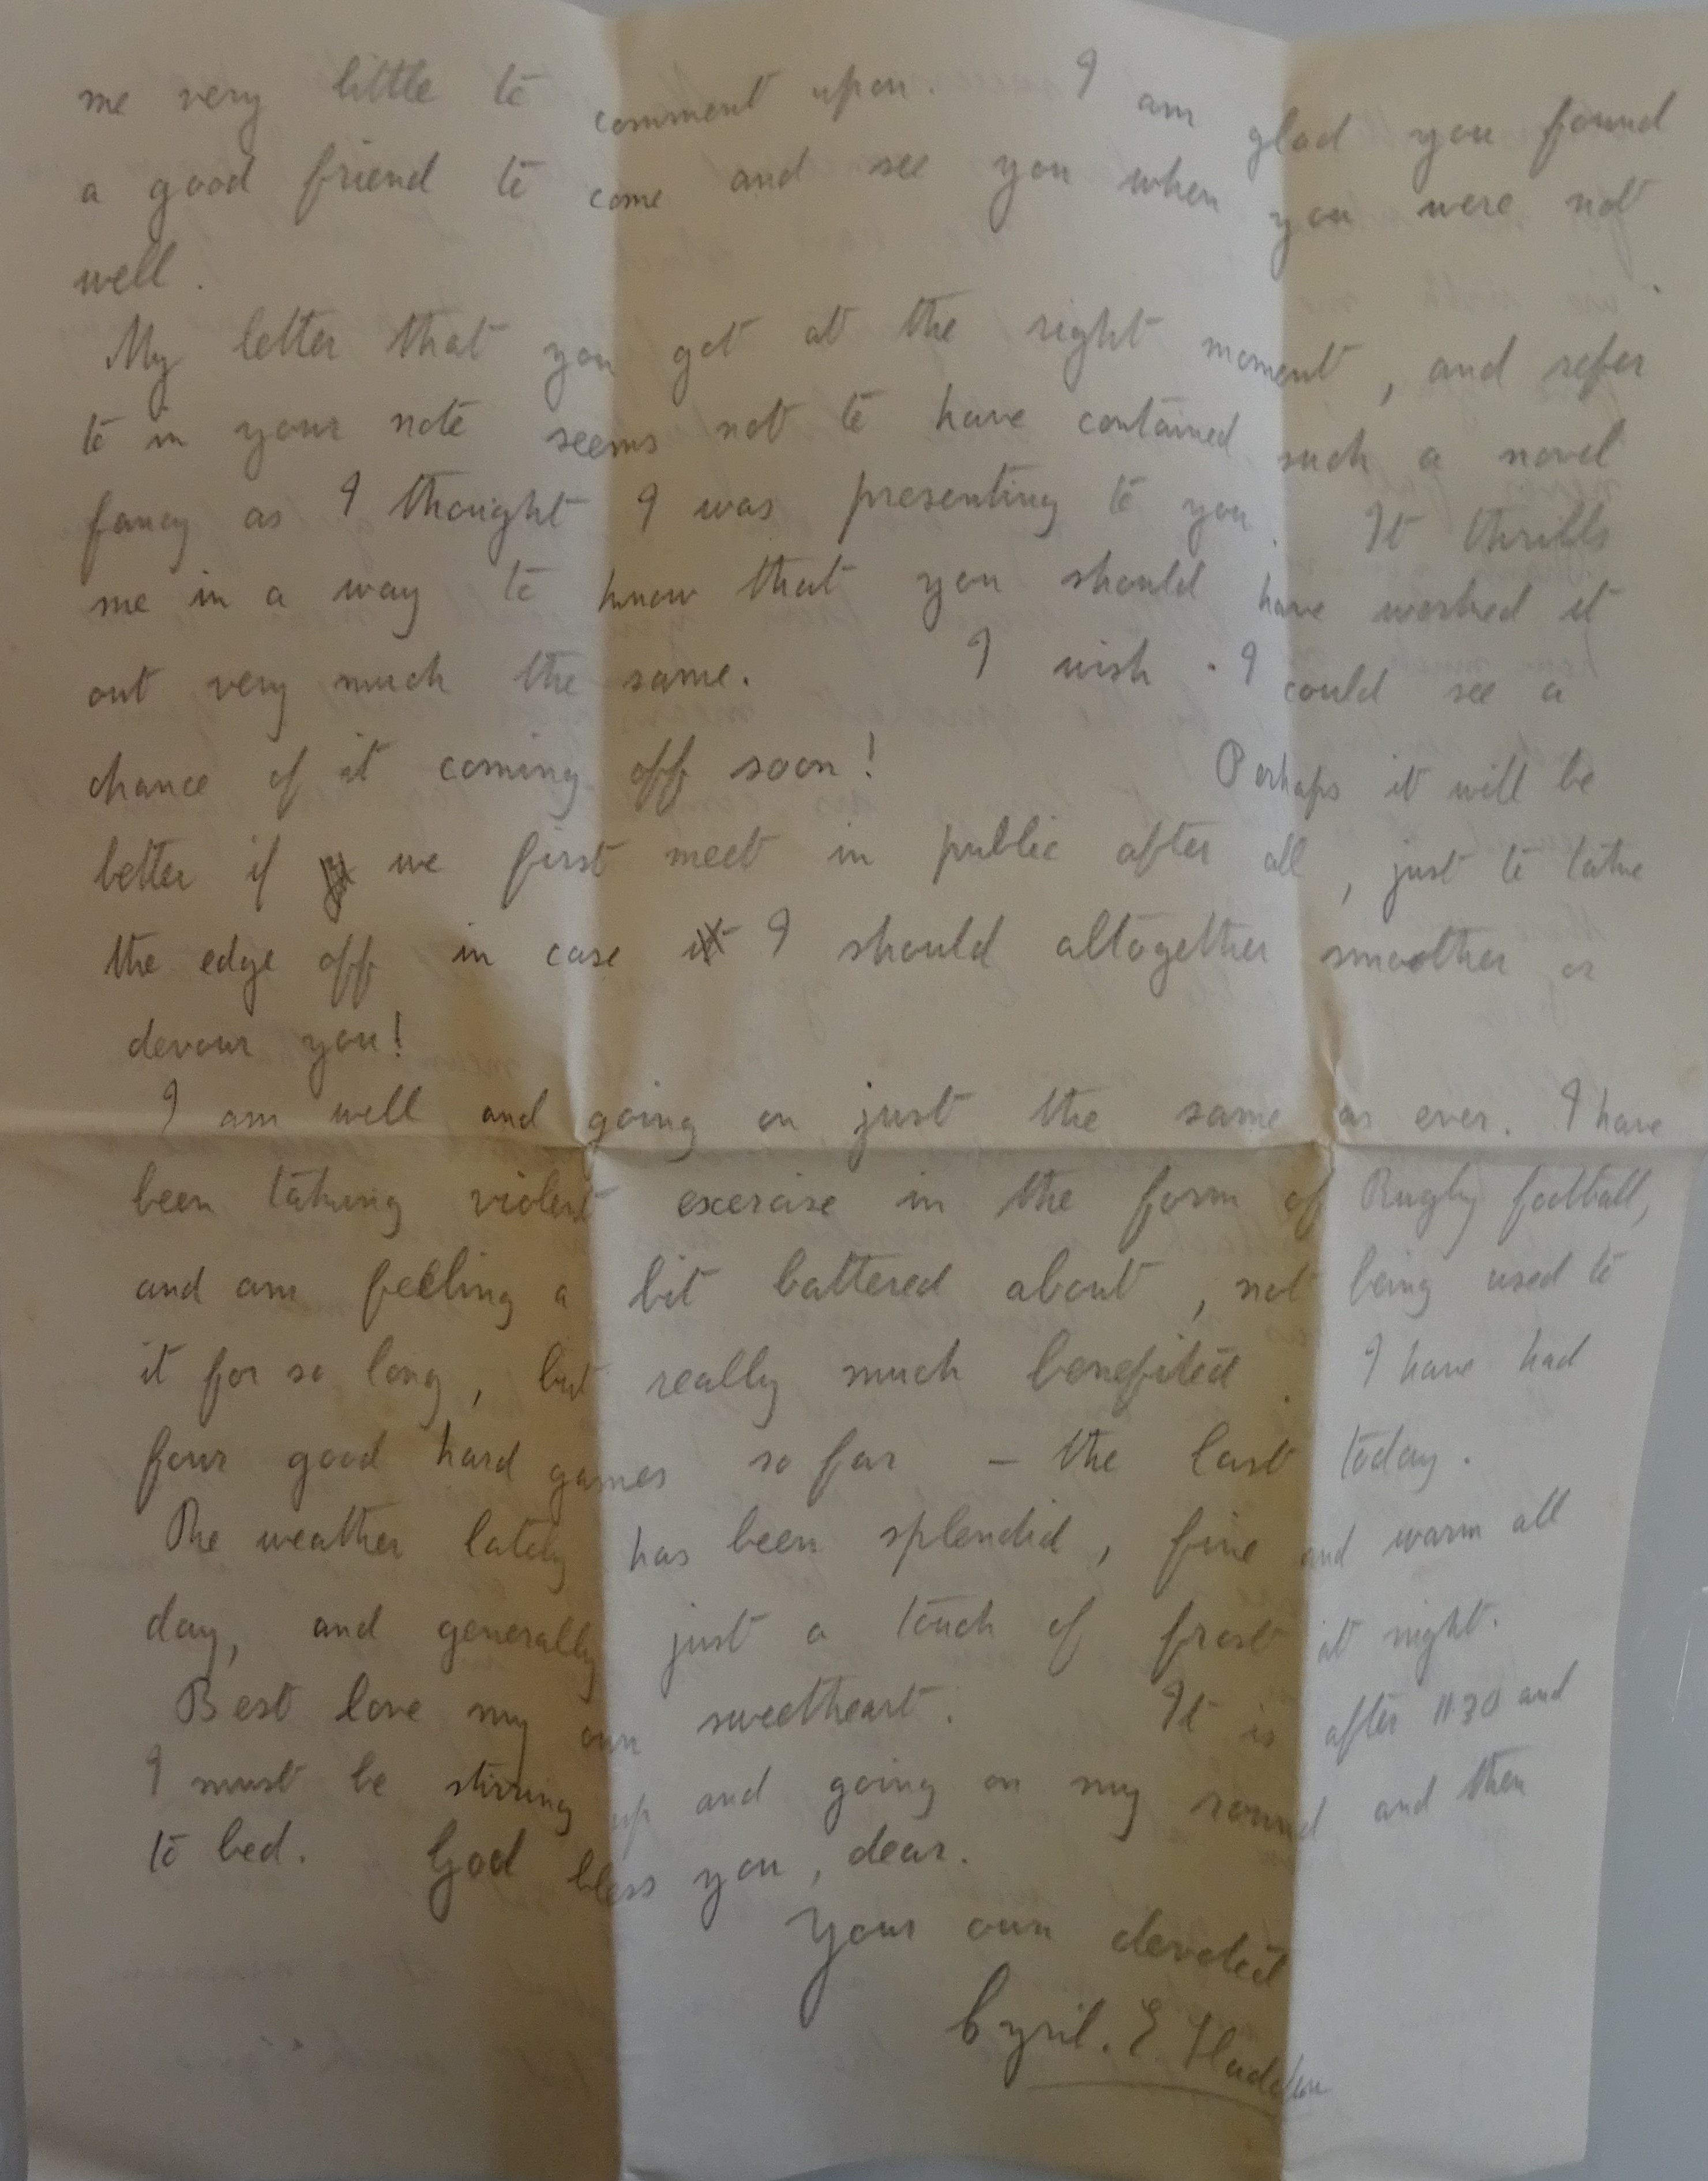 me very little to comment upon. I am glad you found
a good friend to come and see you when you were not
well.
My letter that you got at the right moment, and refer
to in your note seems not to have contained such a novel
fancy as I thought I was presenting to you. It thrills
me in a way to know that you should have worked it
out very much the same. I wish I could see a
chance of it coming off soon! Perhaps it will be
better if we first meet in public after all, just to take
the edge off in case I should altogether smoother or
devour you!
I am well and going on just the same as ever. I have
been taking violent exercise in the form of Rugby football,
and am feeling a bit battered about, not being used to
it for so long, but really much benefited. I have had
four good hard games so far - the last today.
The weather lately has been splendid, fine and warm all
day, and generally just a touch of frost at night.
Best love my own sweetheart. It is after 11.30 and
I must be stirring up and going on my round and then
to bed. God bless you, dear.
Your own devoted
Cyril. E Sladden